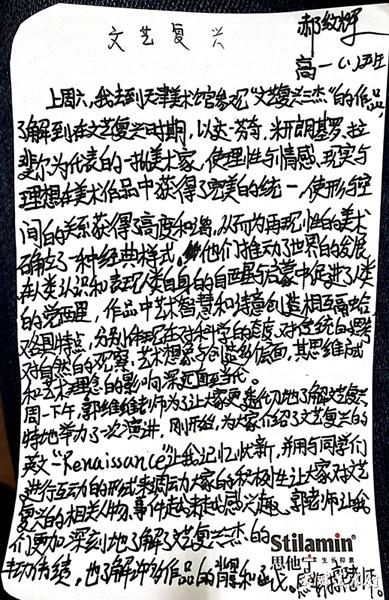 文艺复兴
郝纹辉
高一(1)班
上周六,我去到天津美术馆参观“文艺复兴三杰”的作品,
了解到在文艺复兴时期,以达·芬奇、米开朗基罗、拉
斐尔为代表的一批美术家,使理性与情感、现实与
理想在美术作品中获得了完美的统一,使形与空
间的关系获得了高度和谐,从而为再现性的美术
确立了一种经典样式。他们推动了世界的发展,
在人类认识和表现人类自身的自觉与启蒙中促进了人类
的觉醒,作品中艺术智慧和诗意创造相互高
各具特点,分别体现在对科学的态度、对传统的思考
对自然的观察、艺术想象与创造等层面,其思维
和艺术理念的影响深远直至当代。
周一下午,郭维维老师为了让大家更透彻地了解文艺复兴
特地举办了一次演讲,刚开始,为大家介绍了文艺复兴的
英文“Renaissance”让我记忆犹新,并用与同学们
进行互动的形式来调动大家的积极性让大家对文艺
复兴的相关人物、事件越来越感兴趣。郭老师让我
们更加深刻地了解了文艺复兴三杰的
丰功伟绩,也了解许多作品的背景和
Stilamin
思他宁
生长抑素